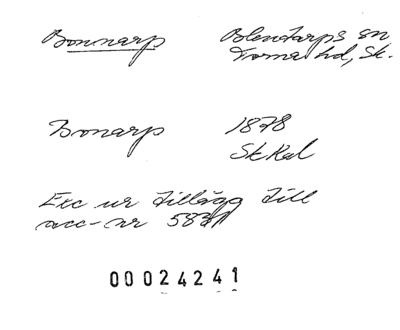 Bonnarp Blentarps sn
Torna hd, Sk.
Bonarp 1878
Sk Kal
Exc ur tillägg till
acc-nr 5831
00024241